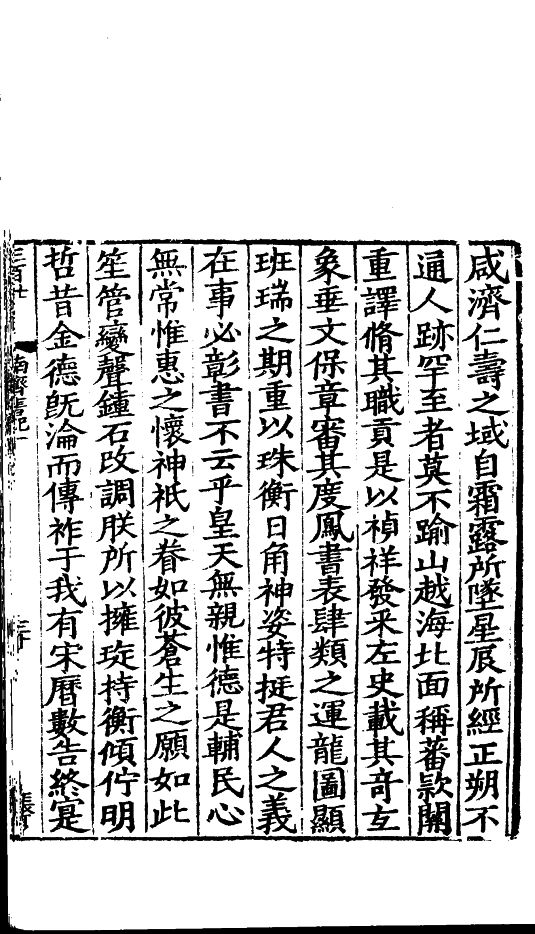 咸濟仁壽之域自霜露所墜星辰所經正朔不
通人跡罕至者莫不踰山越海北面稱蕃欵關
重譯脩其職貢是以禎祥發采左史載其奇玄
象垂文保章審其度鳳書表肆類之運龍圖顯
班瑞之期重以珠衡日角神姿特挺君人之義
在事必彰書不云乎皇天無親惟德是輔民心
無常惟惠之懷神祇之眷如彼蒼生之願如此
笙管變聲鍾石改調朕所以擁琁持衡傾佇明
哲昔金德旣淪而傳祚于我有宋曆數告終寔
南齊書紀一